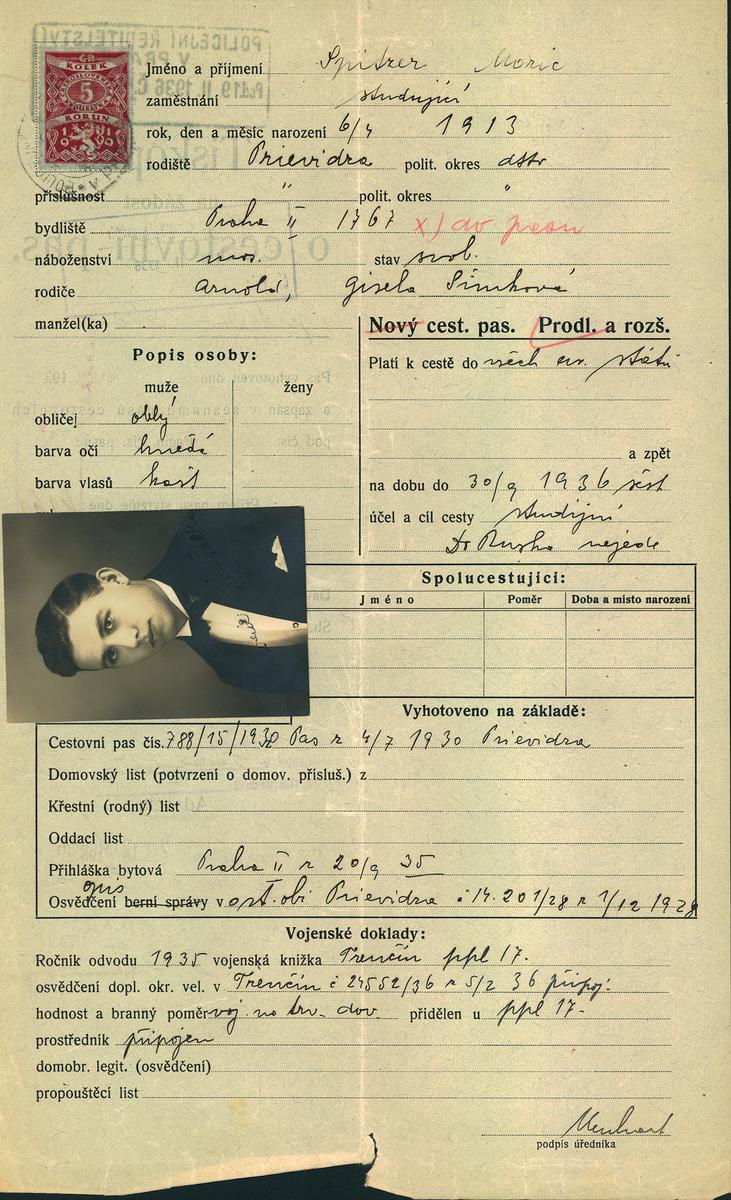 KOLEK
5
KORUN
Jméno a příjmení Spitzer Moric
zaměstnání studující
rok, den a měsíc narození 6/4 1913
rodiště Prievidza polit. okres dtto
příslušnost " polit. okres "
bydliště Praha II 1767 x) do pasu
náboženství mos. stav svob.
rodiče Arnold, Gisela Šimková
manžel(ka)
Nový cest. pas. Prodl. a rozš.
Popis osoby:
Platí k cestě do všech ev. států
muže ženy
obličej oblý
barva očí hnědá
a zpět
barva vlasů kašt
na dobu do 30/9 1936 šest
účel a cíl cesty studijní
Do Ruska nejede
Spolucestující:
Jméno Poměr Doba a misto narození
Vyhotoveno na základě:
Cestovní pas čís. 788/15/1930 Pas z 4/7 1930 Prievidza
Domovský list (potvrzení o domov. přísluš.) z
Křestní (rodný) list
Oddací list
Přihláška bytová Praha II z 20/9 35
Osvědčení berní správy v obi Prievidza č 14.201/28 z 1/12 1928
Vojenské doklady:
Ročník odvodu 1935 vojenská knížka Trenčín ppl 17.
osvědčení dopl. okr. vel. v Trenčín č 24552/36 z 5/2 36 připoj.
hodnost a branný poměr voj. na trv. dov. přidělen u ppl 17.
prostředník připojen
domobr. legit. (osvědčení)
propouštěcí list
podpis úředníka